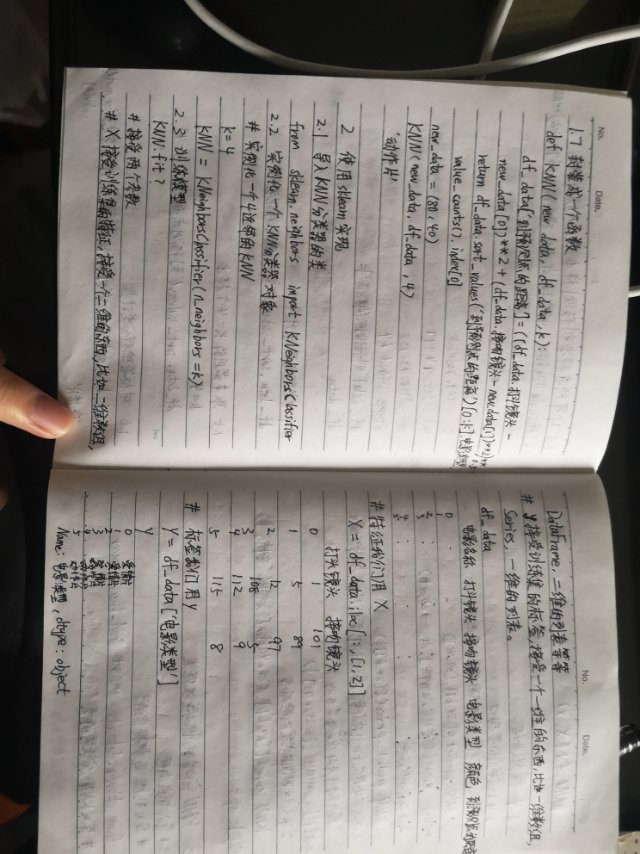 No.
Date.
1.7 封装成一个函数
def KNN(new_data, df_data, k):
df_data['到预测点的距离'] = ((df_data.打斗镜头 -
new_data[0])**2 + (df_data.接吻镜头 - new_data[1])**2)**
0.5
return df_data.sort_values('到预测点的距离')[0:k].电影类型.
value_counts().index[0]
new_data = (80, 40)
KNN(new_data, df_data, 4)
'动作片'
2 使用 sklearn 实现
2.1 导入KNN分类器的类
from sklearn.neighbors import KNeighborsClassifier
2.2 实例化一个KNN分类器对象
# 实例化一个4近邻的KNN
k = 4
KNN = KNeighborsClassifier(n_neighbors = k)
2.3 训练模型
KNN.fit?
# 接受两个参数
# X 接受训练集的特征，接受一个二维的东西，比如二维数组，
No.
Date.
DataFrame, 二维的列表等等
# y 接受训练集的标签，接受一个一维的东西，比如一维数组，
Series, 一维的列表。
df_data
电影名称 打斗镜头 接吻镜头 电影类型 颜色 到预测点的距离
0
1
2
3
4
5
# 特征我们用 X
X = df_data.iloc[:,[1,2]]
打斗镜头 接吻镜头
0 1 101
1 5 89
2 12 97
3 108 5
4 112 9
5 115 8
# 标签我们用 y
y = df_data['电影类型']
y
0 爱情片
1 爱情片
2 爱情片
3 动作片
4 动作片
5 动作片
Name: 电影类型, dtype: object